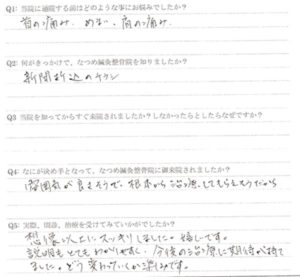 Q1: 当院に通院する前はどのような事にお悩みでしたか?
首の痛み、めまい、肩の痛み。
Q2: 何がきっかけで、なつめ鍼灸整骨院を知りましたか?
新聞折込のチラシ
Q3 当院を知ってからすぐ来院されましたか?しなかったらとしたらなぜですか?
Q4: なにが決め手となって、なつめ鍼灸整骨院に御来院されましたか?
雰囲気が良さそうで、根本から治療してもらえそうだから
Q5: 実際、問診、治療を受けてみていかがでしたか?
想像以上にスッキリしました。嬉しいです。
説明もとてもわかりやすく、今後の治療に期待が持て
ました。どう変わっていくか楽しみです。